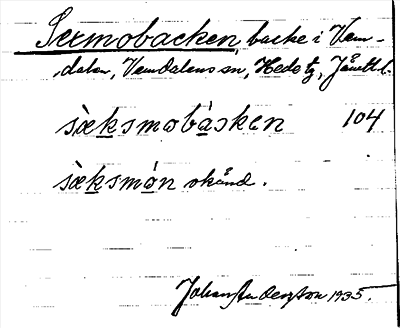 Sexmobacken, backe i Vem-
dalen, Vemdalens sn, Hede tg, Jämtl.
sæksmobàsken 104
sæksmón okänd.
Johan Anderzton 1935.